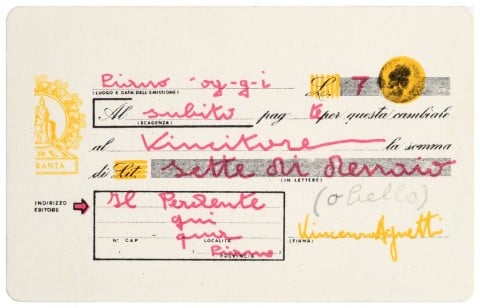 oy-g-i L. 7
(LUOGO E DATA DELL'EMISSIONE)
Al subito pag te per questa cambiale
(SCADENZA)
al Vincitore la somma
RANTA
di Lit. sette di
(IN LETTERE)
(o bello)
INDIRIZZO
EBITORE
Il Perdente
qui
N° CAP LOCALITÀ
PROVINCIA
Vincenzo Agnetti
(FIRMA)